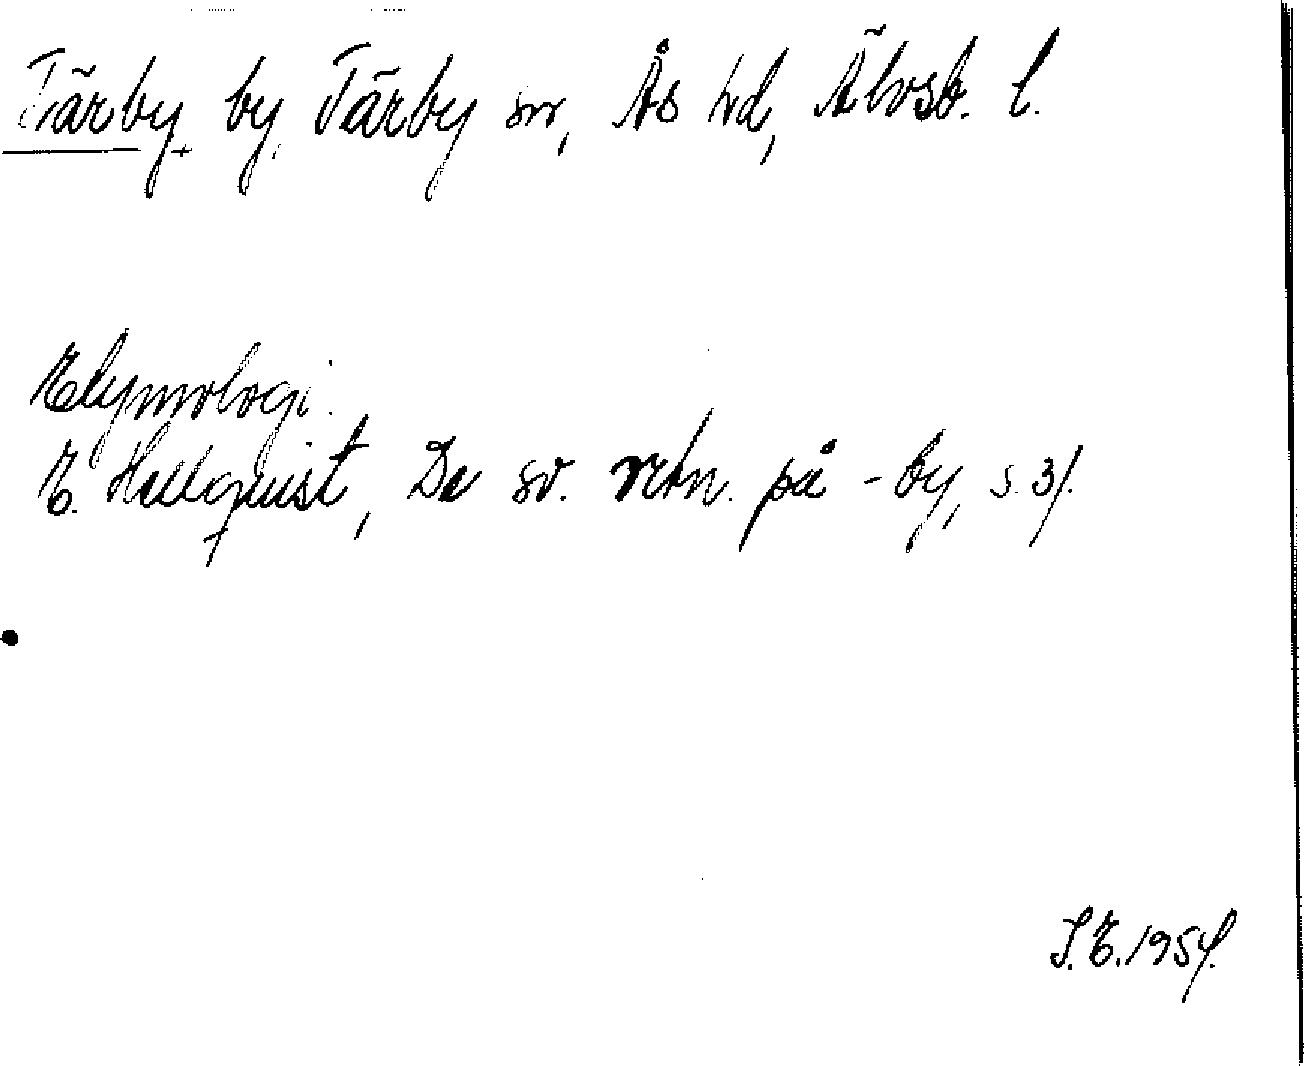 Tärby, by, Tärby sn, Ås hd, Älvsb. l.
Etymologi.
E. Hellquist, De sv. ortn. på -by, s. 31.
S.E. 1954.